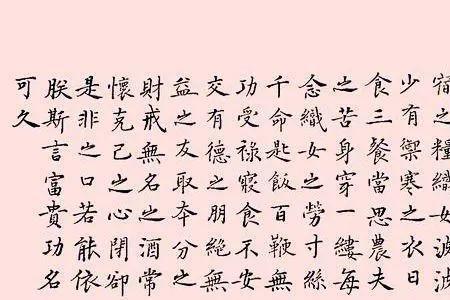 宿之糧織女波波
少有禦寒之衣日
食三餐當思農夫
之苦身穿一縷每
念織女之勞寸絲
千命匙飯百鞭無
功受祿寢食不安
交有德之朋絕無
益之友取本分之
財戒無名之酒常
懷克己之心閉卻
是非之口若能依
朕斯言富貴功名
可久